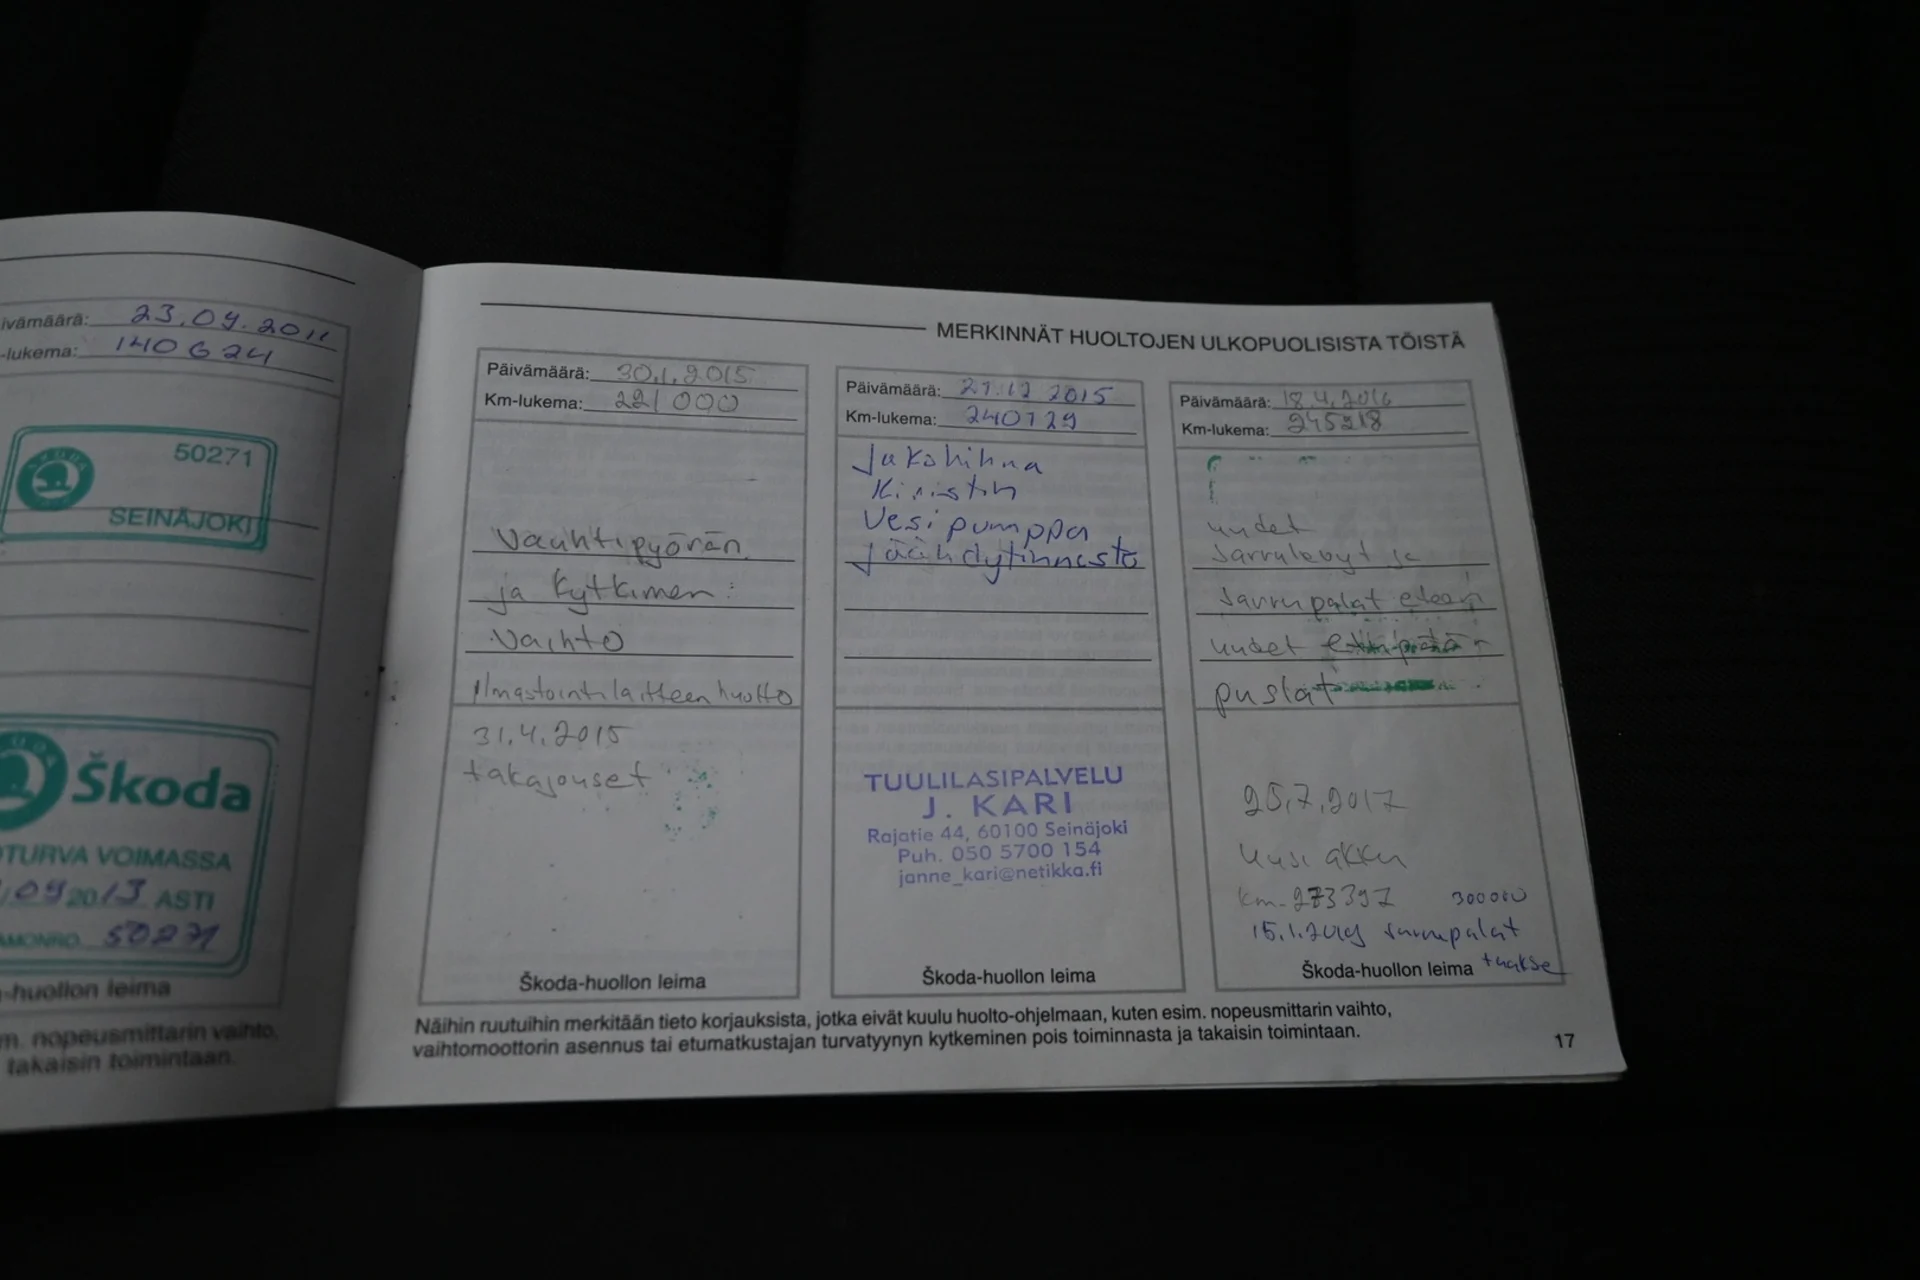 ivämäärä: 23.09.2011
-lukema: 140624
50271
SEINÄJOKI
Škoda
OTURVA VOIMASSA
.09 2013 ASTI
AMONRO. 50271
-huollon leima
m. nopeusmittarin vaihto,
takaisin toimintaan.
MERKINNÄT HUOLTOJEN ULKOPUOLISISTA TÖISTÄ
Päivämäärä: 30.1.2015
Km-lukema: 221 000
Vauhtipyörän
ja kytkimen
vaihto
Ilmastointilaitteen huolto
31.4.2015
takajouset
Škoda-huollon leima
Päivämäärä: 21.12 2015
Km-lukema: 240129
Jakohihna
Kiristin
Vesipumppu
Jäähdytinneste
TUULILASIPALVELU
J. KARI
Rajatie 44, 60100 Seinäjoki
Puh. 050 5700 154
janne_kari@netikka.fi
Škoda-huollon leima
Päivämäärä: 18.4.2016
Km-lukema: 245218
uudet
Jarrulevyt ja
Jarrupalat eteen
uudet
puslat
25.7.2017
Uusi akku
km. 273397 300000
15.1.2019 Jarrupalat
taakse
Škoda-huollon leima
Näihin ruutuihin merkitään tieto korjauksista, jotka eivät kuulu huolto-ohjelmaan, kuten esim. nopeusmittarin vaihto,
vaihtomoottorin asennus tai etumatkustajan turvatyynyn kytkeminen pois toiminnasta ja takaisin toimintaan.
17